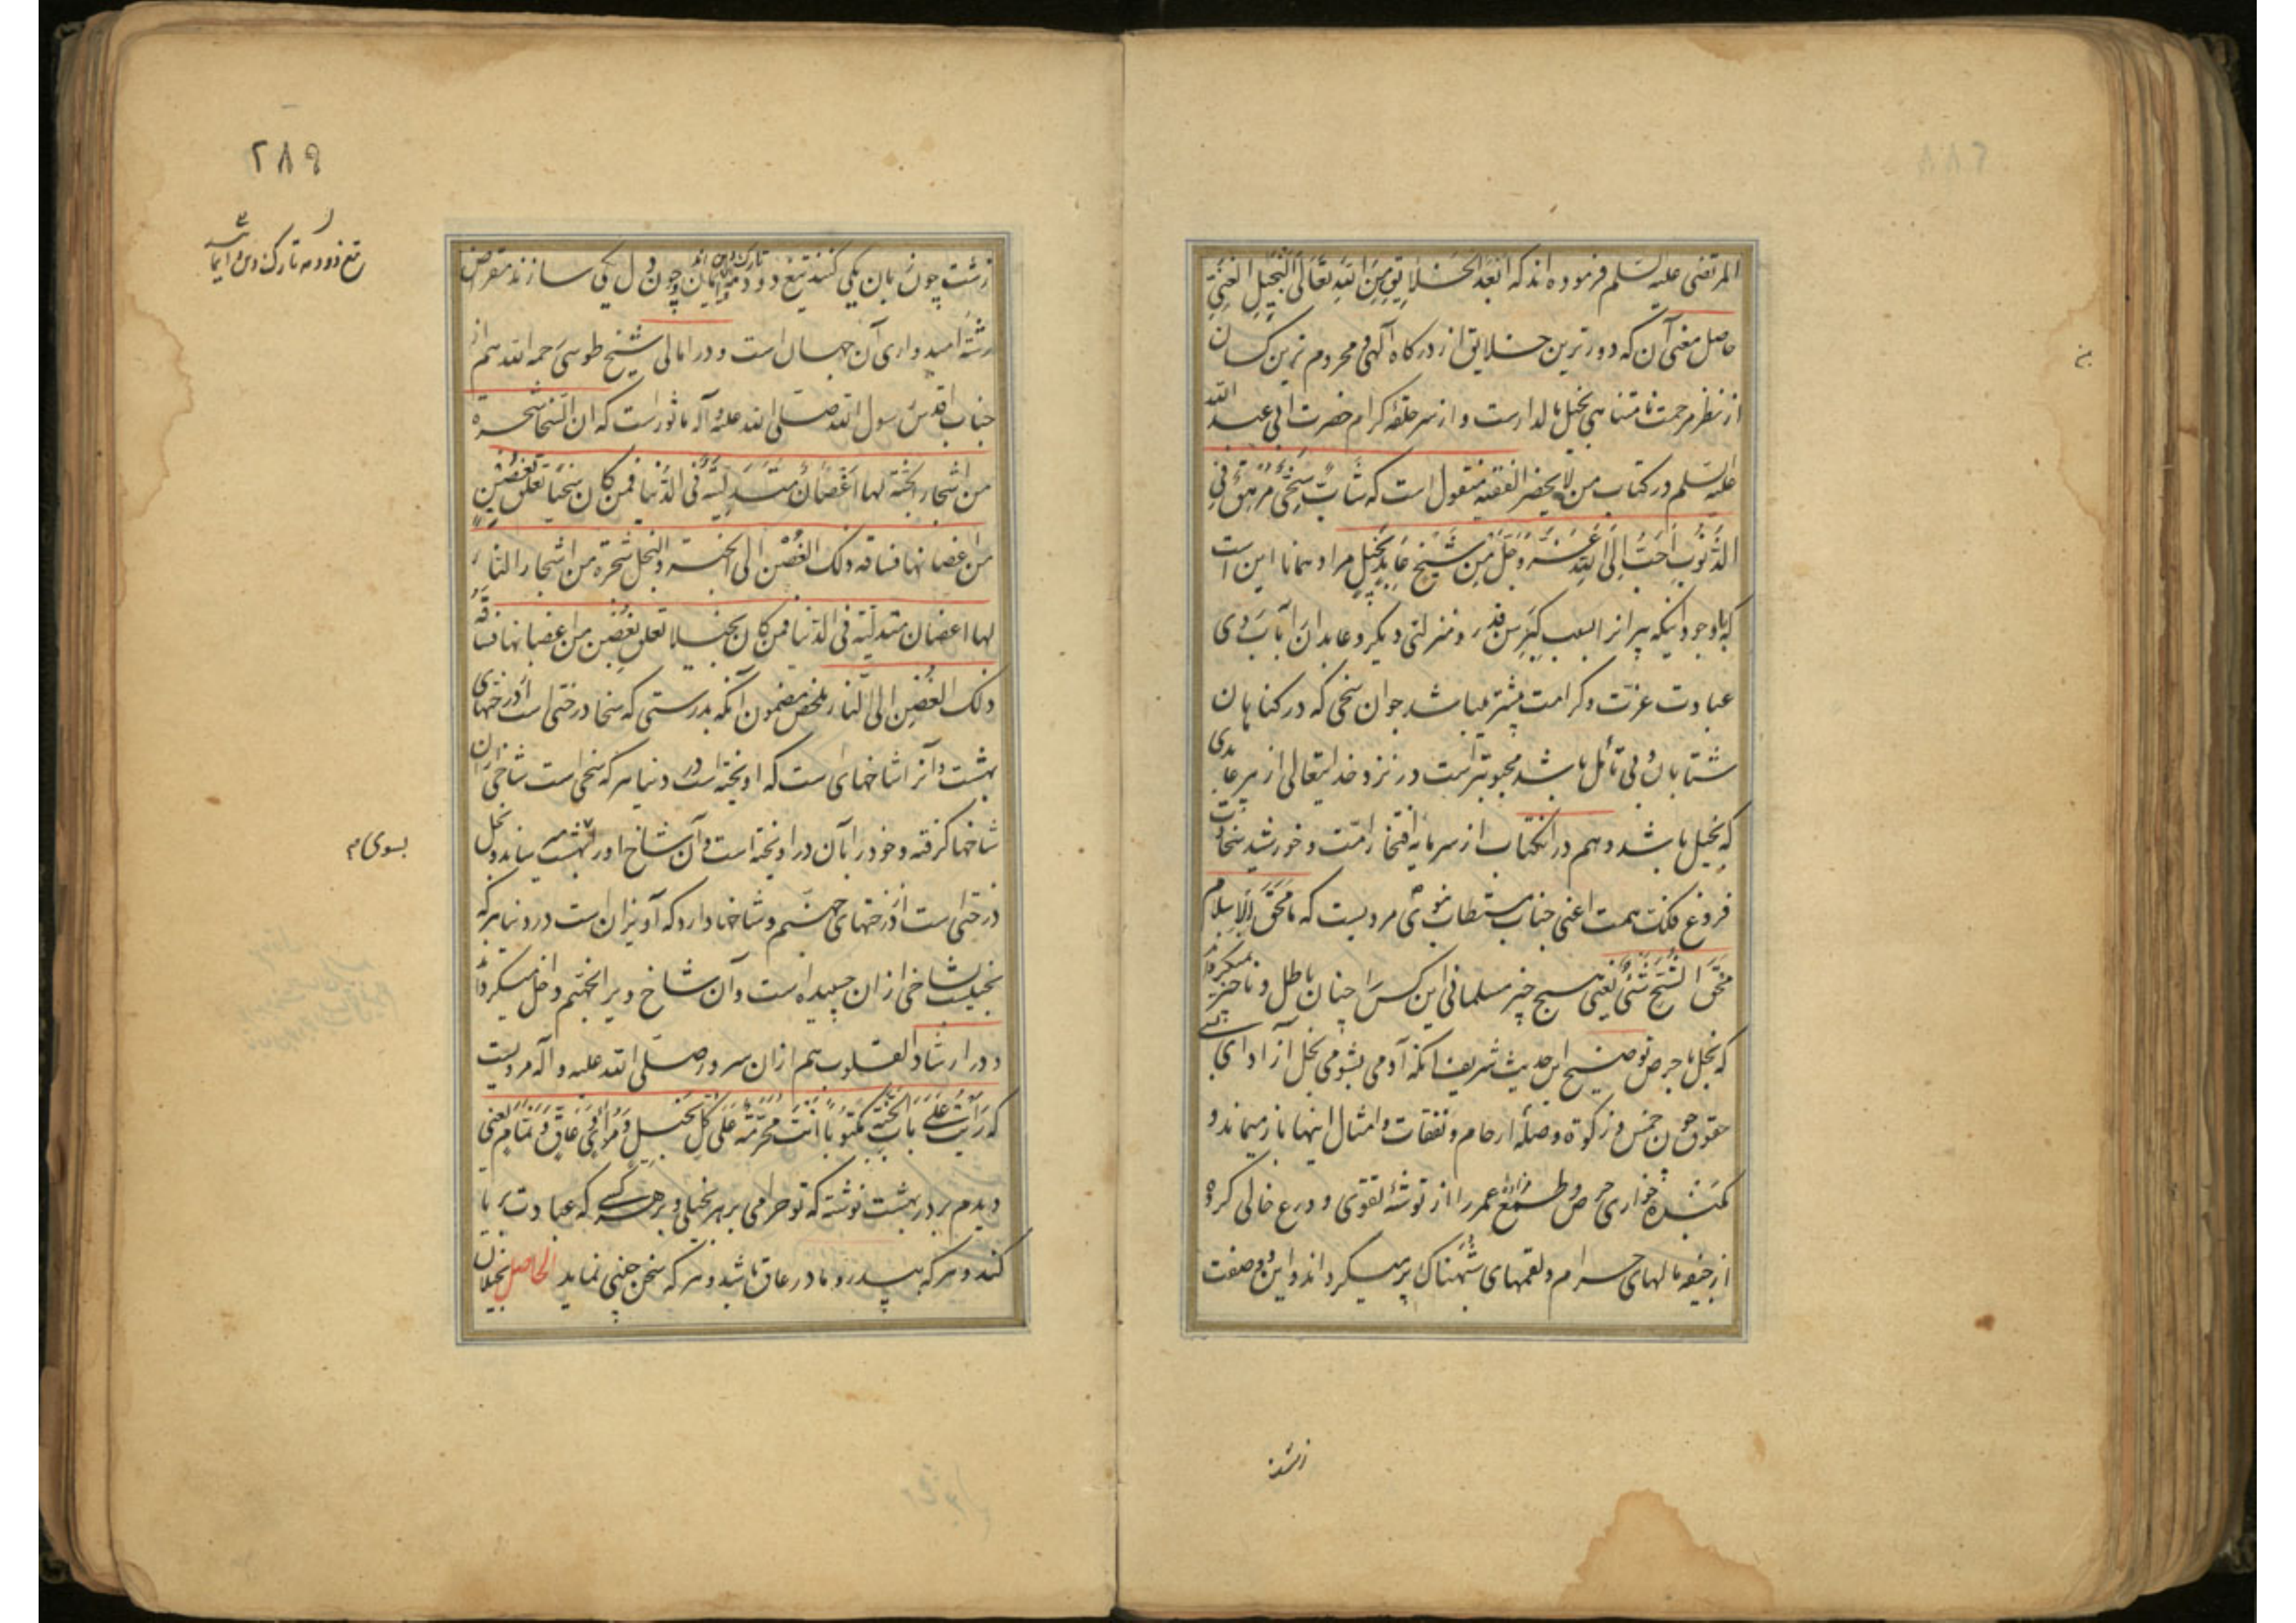 المرتضی علیه السلم فرموده اند که ابعد الخلایق من الله تعالی البخیل الغنی
حاصل معنی آن که دورترین خلایق از درگاه آلهی و محروم ترین کسان
از نظر مرحمت نامتناهی بخیل مالدارست و از سر حلقه کرام حضرت ابی عبد الله
علیه السلم در کتاب من لا یحضر الفقیه منقول است که شابٌ سخیٌ مرهقٌ فی
الذنوب احب الی الله عز و جل من شیخ عابد بخیل مراد همانا این است
که باوجود اینکه پیرانرا بسبب کبر سن قدر و منزلتی دیگر و عابدان را بسبب وی
عبادت عزت و کرامت بیشتر میباشد جوان سخی که در کناهان
شتابان و بی تأمل باشد محبوبتر است در نزد خدایتعالی از پیر عابدی
که بخیل باشد و هم در انکتاب از سرمایه افتخار امت و خورشید سخاوت
فروغ فلک همت اعنی جناب مستطاب نبوی مرویست که ما محق الاسلام
محق الشح شئ یعنی هیچ چیز مسلمانی این کس را چنان باطل و ناچیز نمیکرداند
که بخل با حرص توضیح این حدیث شریف انکه آدمی بشومی بخل از ادای
حقوق چون خمس و زکوة و صله ارحام و نفقات و امثال اینها باز میماند و
خواری حرص و طمع عمر را از توشه تقوی و ورع خالی کرده
از جیفه مالهای حرام و لقمهای شبهناک پر میکرداند و این دو صفت
زشت
۲۸۹
تیغ دودمه تارک دین و ایمان
زشت چون زبان یکی کنند تیغ دودمه ایمان و چون دل یکی سازند مقراض
رشته امیدواری آن جهان است و در امالی شیخ طوسی رحمه الله هم از
جناب اقدس رسول الله صلی الله علیه و آله ماثور است که ان السخا شجرة
من اشجار الجنة لها اغصان متدلیة فی الدنیا فمن کان سخیا تعلق بغصن
من اغصانها فساقه ذلک الغصن الی الجنة و البخل شجرة من اشجار النار
لها اغصان متدلیة فی الدنیا فمن کان بخیلا تعلق بغصن من اغصانها فساقه
ذلک الغصن الی النار ملخص مضمون آنکه بدرستی که سخا درختی است از درختهای
بهشت و آنرا شاخهای است که اویخته است در دنیا هر که سخی است شاخی از ان
شاخها کرفته و خود را بآن در اویخته است و آن شاخ او را ببهشت میرساند و بخل
بسوی م
درختی است از درختهای جهنم و شاخها دارد که آویزان است در دنیا هر که
بخیلیست بشاخی از ان چسپیده است و آن شاخ ویرا بجهنم داخل میکرداند
و در ارشاد القلوب هم از ان سرور صلی الله علیه و آله مرویست
که رایت علی باب الجنة مکتوبا انت محرمة علی کل بخیل و مرائی و عاق و نمام یعنی
دیدم بر در بهشت نوشته که تو حرامی بر هر بخیلی و بر هر کسی که عبادت بریا
کند و هر که بپدر و مادر عاق باشد و هر که سخن چینی نماید الحاصل بخیلان